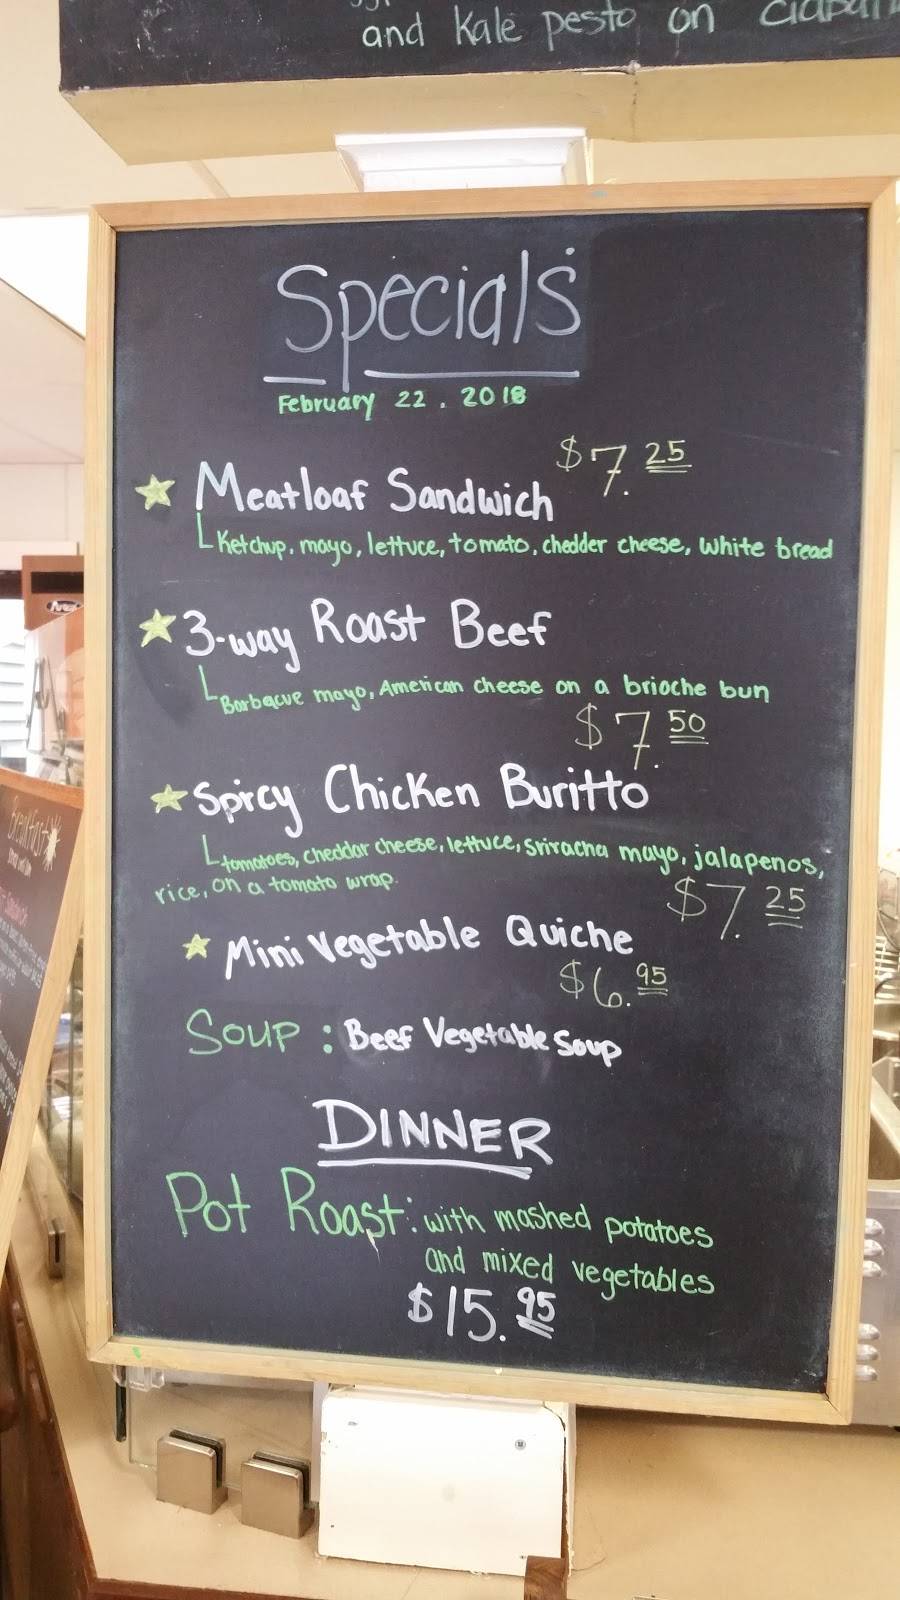 and Kale pesto on
Specials
February 22. 2018
Meatloaf Sandwich $7.25
Ketchup, mayo, lettuce, tomato, chedder cheese, white bread
3-way Roast Beef
Barbecue mayo, American cheese on a brioche bun
$7.50
Spicy Chicken Buritto
tomatoes, cheddar cheese, lettuce, sriracha mayo, jalapenos,
rice, on a tomato wrap.
$7.25
Mini Vegetable Quiche
$6.95
Soup: Beef Vegetable Soup
DINNER
Pot Roast: with mashed potatoes
and mixed vegetables
$15.95
breakfast